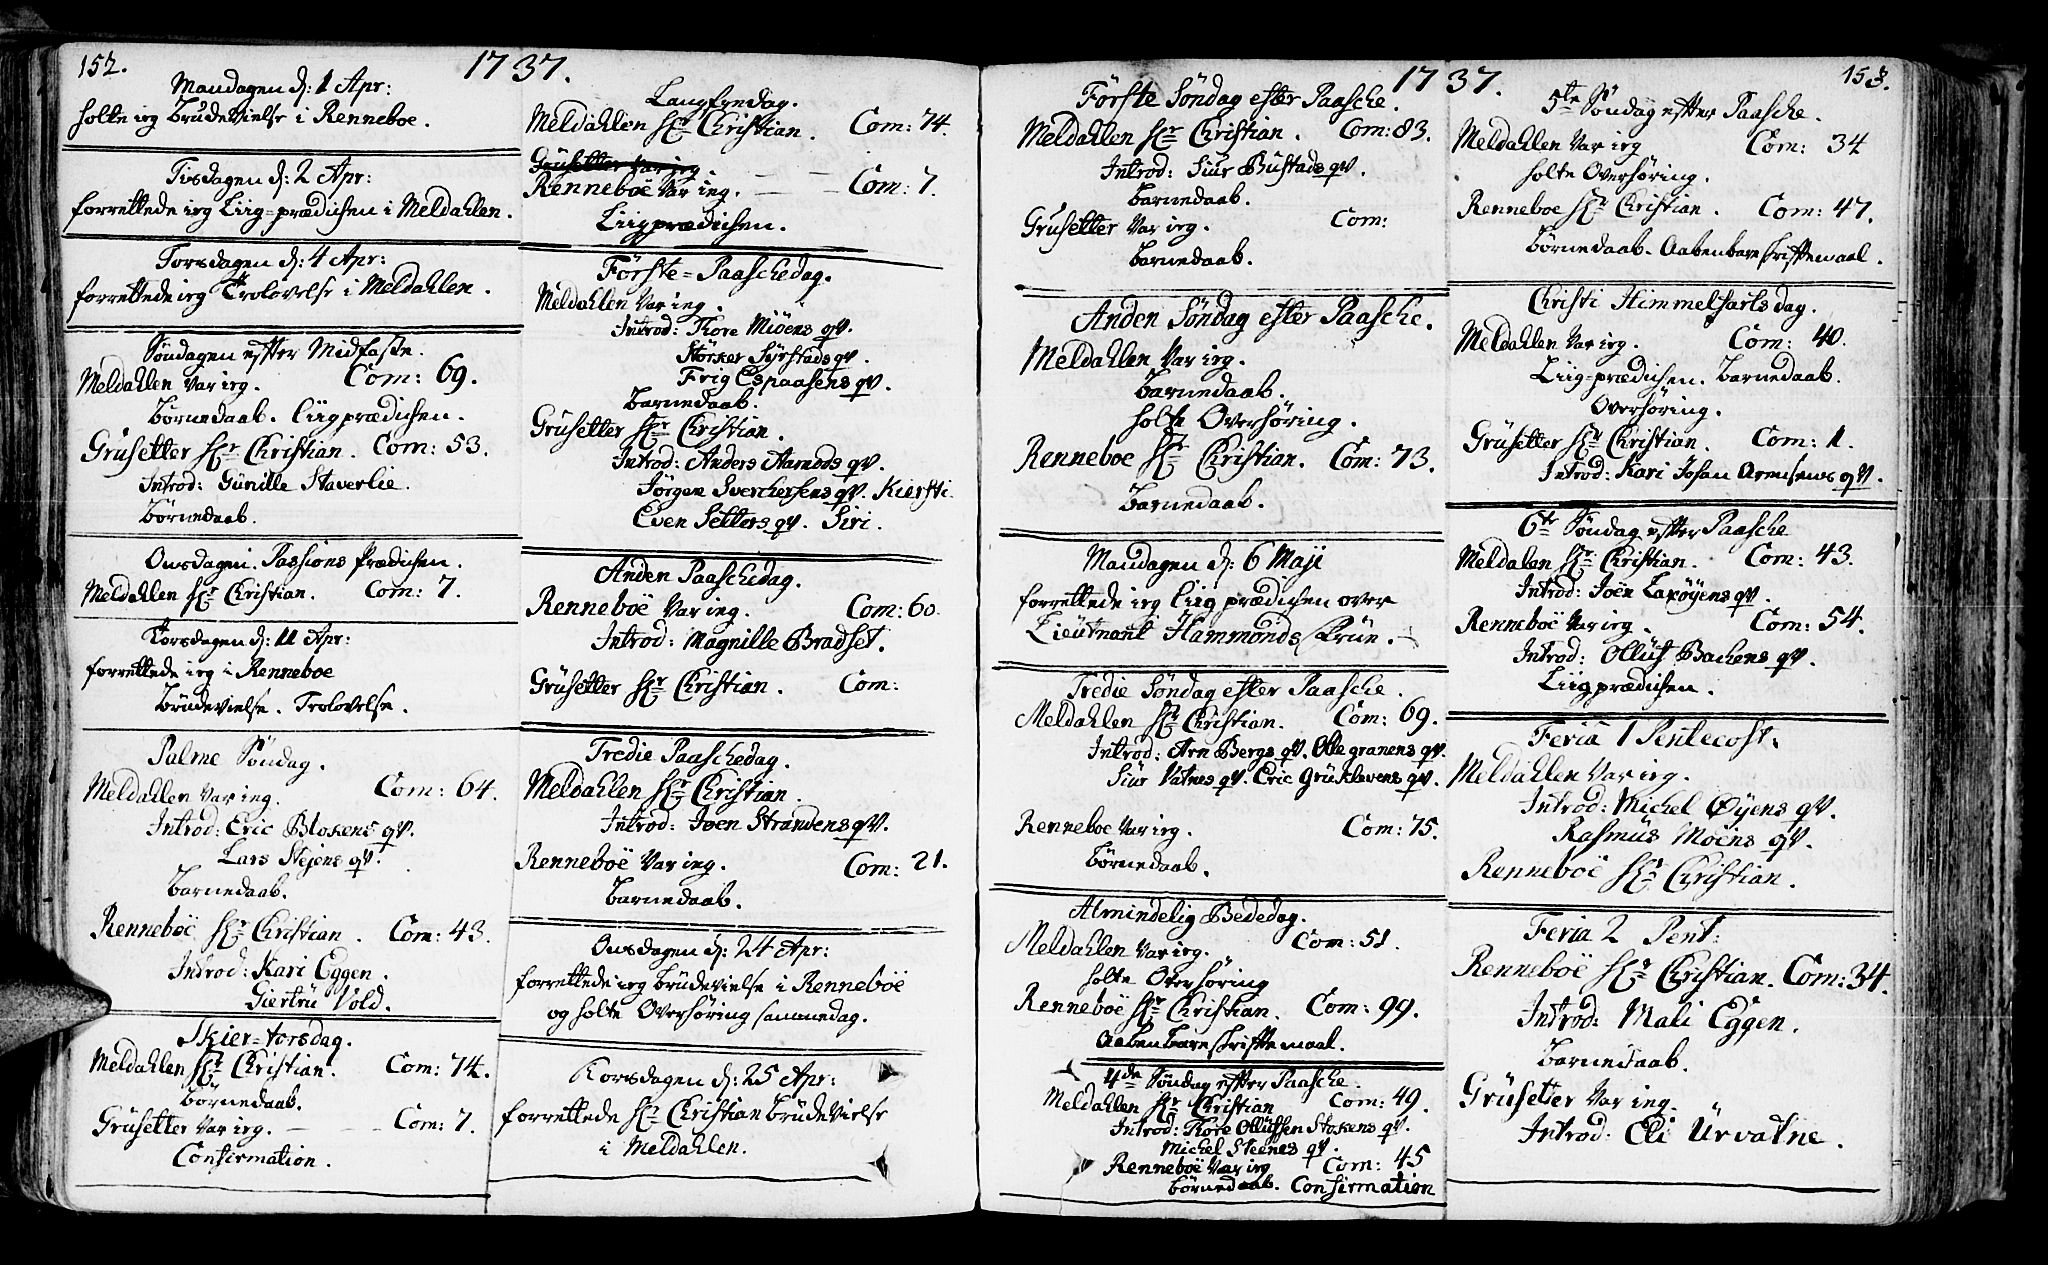 152.
1737.
Mandagen d: 1 Apr:
holte ieg Brudevielse i Renneboe.
Tisdagen d: 2 Apr:
forrettede ieg Liig-prædichen i Meldahlen.
Torsdagen d: 4 Apr:
forrettede ieg Trolovelse i Meldahlen.
Søndagen efter Midfaste.
Meldahlen var ieg. Com: 69.
Børnedaab. Liigprædichen.
Grüsetter Hr Christian. Com: 53.
Introd: Gunille Staverlie.
Børnedaab.
Onsdagen. Passions Prædichen.
Meldahlen Hr Christian. Com: 7.
Torsdagen d: 11 Apr:
forrettede ieg i Renneboe
Brüdevielse. Trolovelse.
Palme Søndag.
Meldahlen var ieg. Com: 64.
Introd: Eric Blokens qv.
Lars Stejens qv.
Barnedaab.
Renneboë Hr Christian. Com: 43.
Introd: Kari Eggen.
Giertrü Vold.
Skier-torsdag.
Meldahlen Hr Christian. Com: 74.
Børnedaab.
Grüsetter var ieg. Com: 7.
Confirmation.
Langfredag.
Meldahlen Hr Christian. Com: 74.
Grüsetter var ieg.
Renneboë var ieg. Com: 7.
Liigprædichen.
Förste-Paaschedag.
Meldahlen var ieg.
Introd: Thore Miöens qv.
Störker Syrstads qv.
Frig Espaasens qv.
Barnedaab.
Grüsetter Hr Christian.
Introd: Anders Aamods qv.
Jörgen Sverchersens qv. Kiersti.
Even Setters qv. Siri.
Anden Paaschedag.
Renneboë var ieg. Com: 60.
Introd: Magnille Bradset.
Grüsetter Hr Christian. Com:
Tredie Paaschedag.
Meldahlen Hr Christian.
Introd: Joen Strandens qv.
Renneboë var ieg. Com: 21.
Barnedaab.
Onsdagen d: 24 Apr:
forrettede ieg Brüdevielse i Renneboë
og holte Overhøring sammedag.
Torsdagen d: 25 Apr:
forrettede Hr Christian Brüdevielse
i Meldahlen.
1737.
153.
Förste Söndag efter Paasche.
Meldahlen Hr Christian. Com: 83.
Introd: Siur Bustads qv.
Barnedaab.
Grusetter var ieg. Com:
Barnedaab.
Anden Söndag efter Paasche.
Meldahlen var ieg.
Barnedaab.
holte Overhøring.
Renneboe Hr Christian. Com: 73.
Barnedaab.
Mandagen d: 6 Maji
forrettede ieg Liigprædichen over
Lieutnant Hammonds Frue.
Tredie Söndag efter Paasche.
Meldahlen Hr Christian. Com: 69.
Introd: Arn Bergs qv. Olle granens qv.
Siur Vatnes qv. Eric Grütlevens qv.
Renneboe var ieg. Com: 75.
Børnedaab.
Almindelig Bededag.
Meldahlen var ieg. Com: 51.
holte Overhøring
Renneboë Hr Christian. Com: 99.
Aabenbare skriftemaal.
4de Søndag efter Paasche.
Meldahlen Hr Christian Com: 49.
Introd: Thore Ollüfsen Stokens qv.
Michel Steenes qv.
Renneboë var ieg Com: 45
Børnedaab. Confirmation
5te Søndag efter Paasche.
Meldahlen var ieg Com: 34
holte Overhøring.
Renneboe Hr Christian. Com: 47.
Børnedaab. Aabenbare skriftemaal.
Christi Himmelfarts dag.
Meldahlen var ieg. Com: 40.
Liig-prædichen. Barnedaab.
Overhøring.
Grüsetter Hr Christian. Com: 1.
Introd: Kari Johan Arensens qv.
6te Søndag efter Paasche
Meldalen Hr Christian. Com: 43.
Introd: Joen Laxøyens qv.
Renneboë var ieg. Com: 54.
Introd: Olluf Bachens qv.
Liigprædichen.
Feria 1 Pentecost.
Meldahlen var ieg.
Introd: Michel Øyens qv.
Rasmüs Moens qv.
Renneboë Hr Christian.
Feria 2 Pent:
Renneboë Hr Christian. Com: 34.
Introd: Mali Eggen.
Barnedaab.
Grüsetter var ieg.
Introd: Eli Ürvatne.